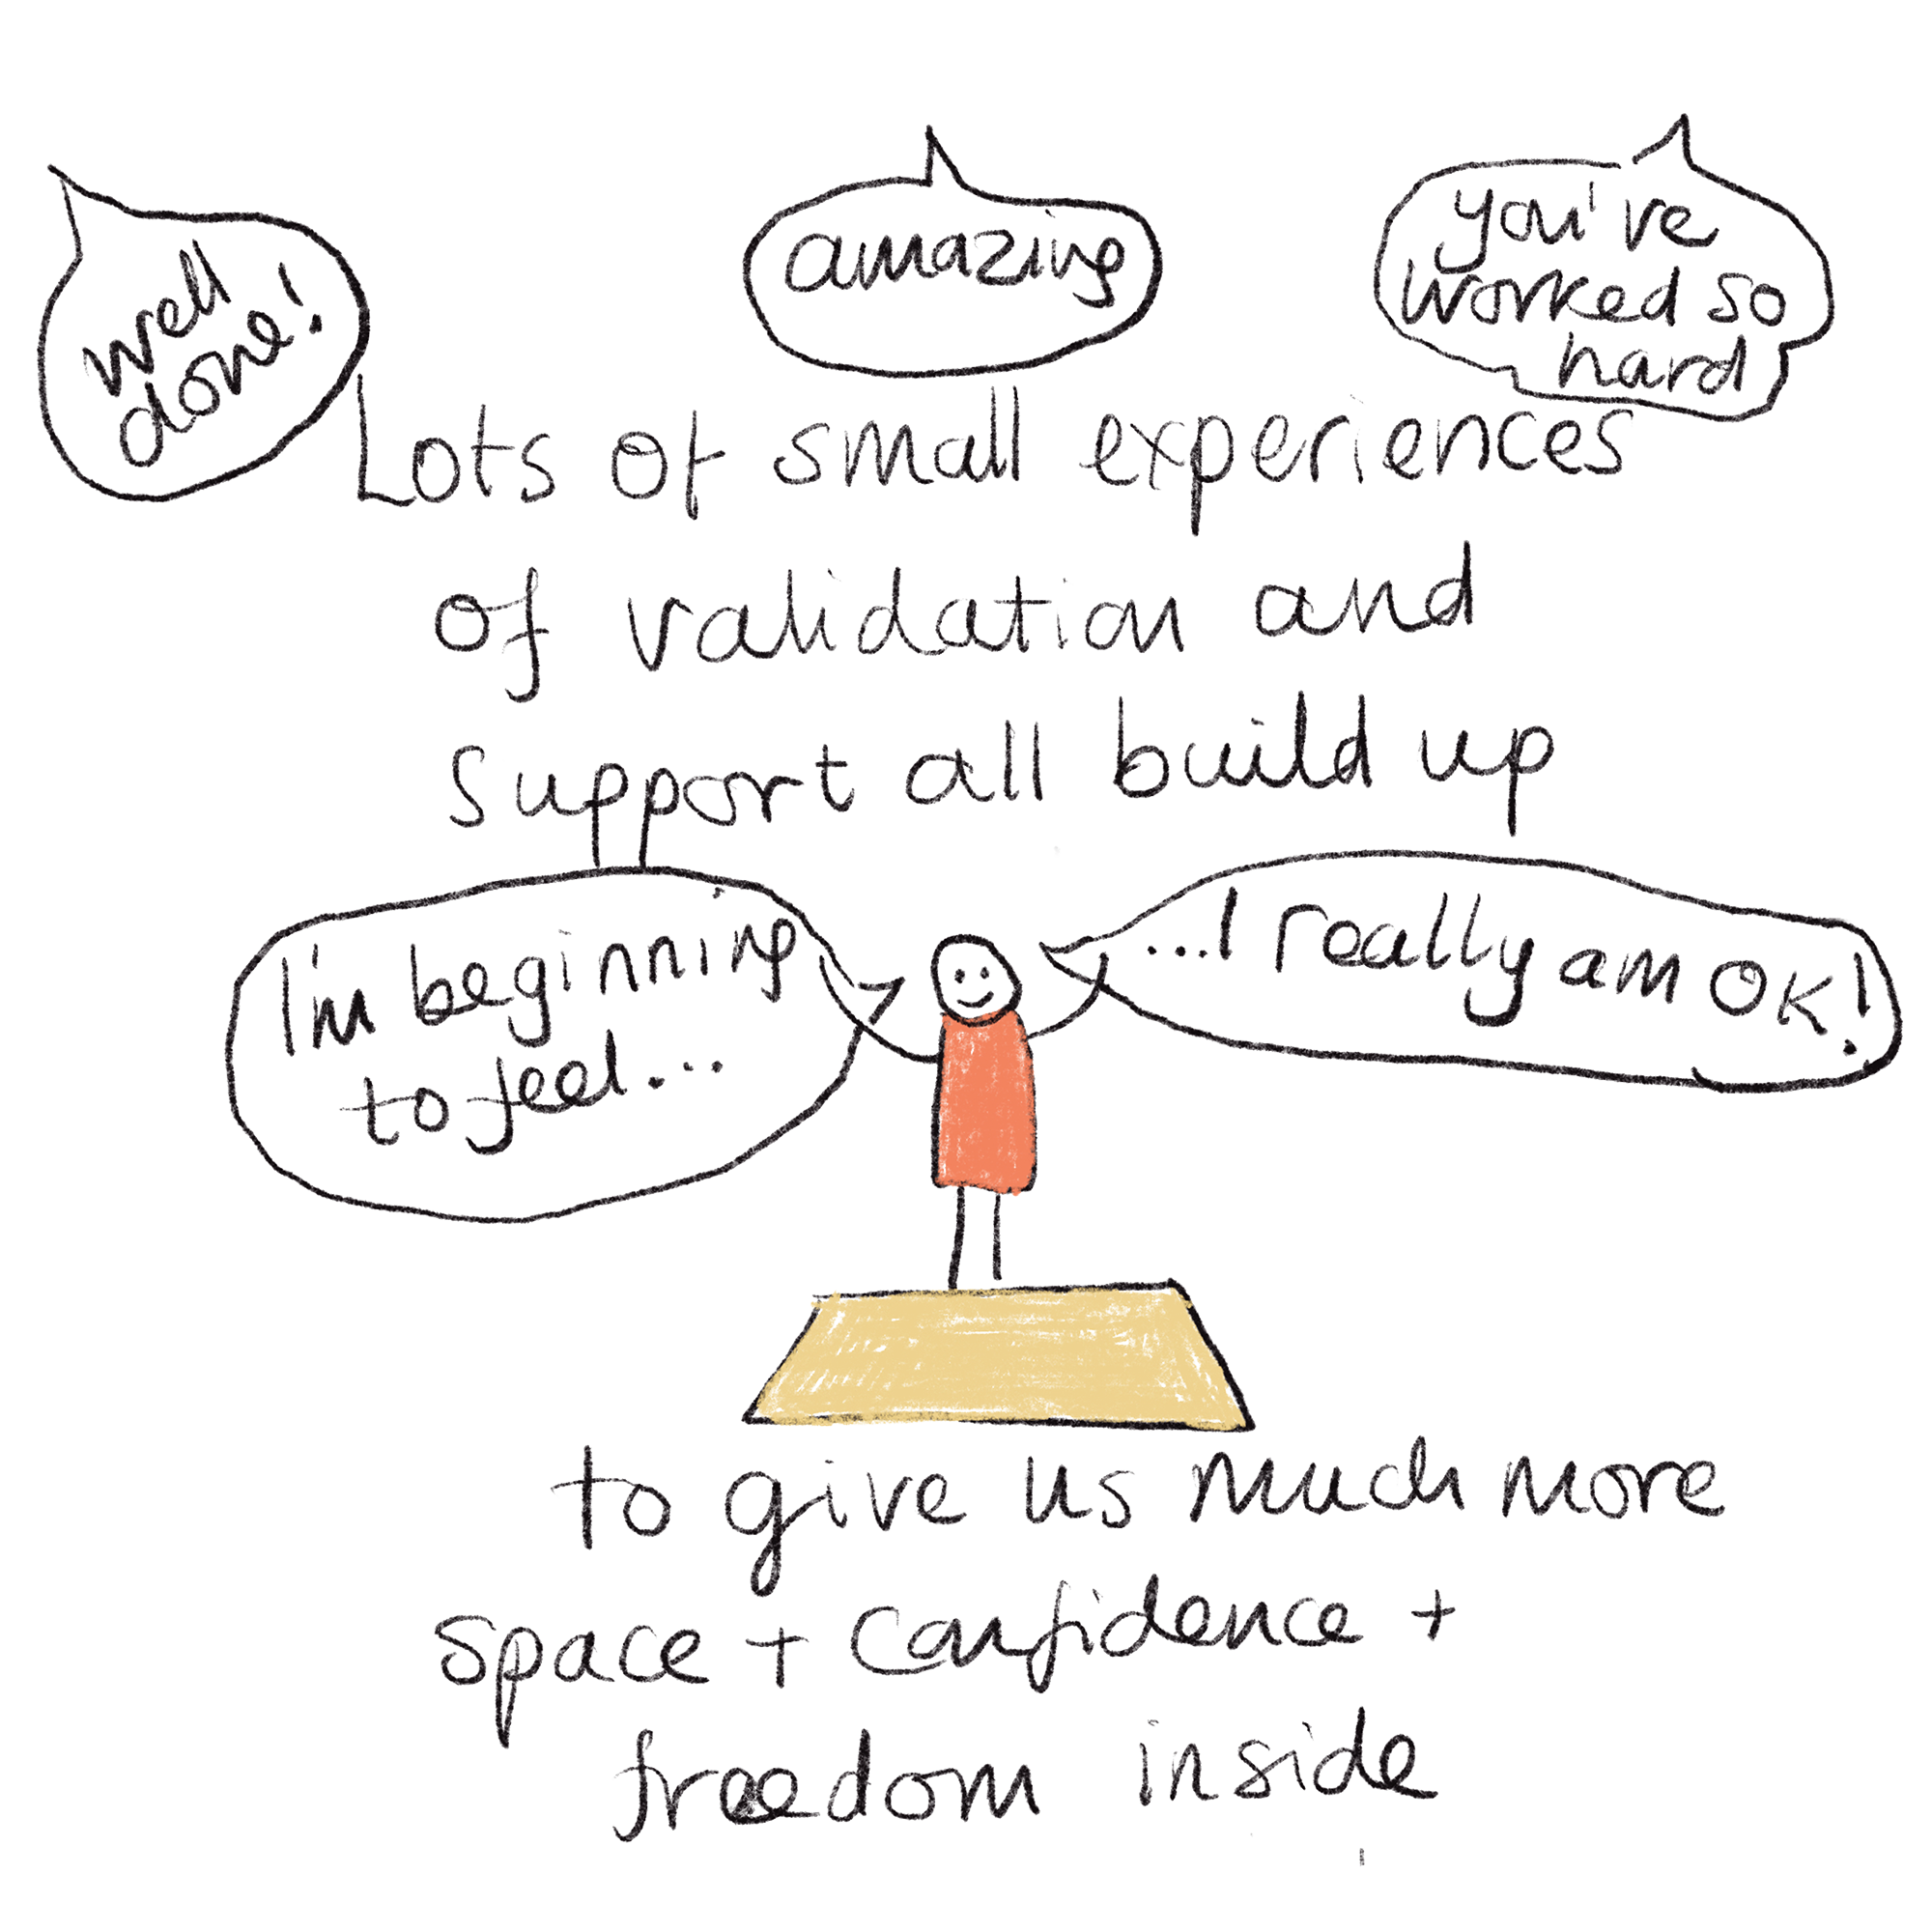 well
done!
amazing
you've
worked so
hard
Lots of small experiences
of validation and
support all build up
I'm beginning
to feel...
...I really am OK!
to give us much more
space + confidence +
freedom inside